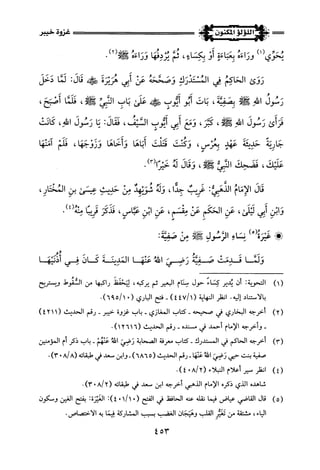 اللؤلؤ المكنون
غزوة خيبر
يُحَوِّي(١) وراءَهُ بِعَبَاءَةٍ أَوْ بِكِسَاءٍ، ثُمَّ يُرْدِفُهَا وَرَاءَهُ ﷺ(٢).
رَوَى الحَاكِمُ فِي المُسْتَدْرَكِ وَصَحَّحَهُ عَنْ أَبِي هُرَيْرَةَ ﵁ قَالَ: لَمَّا دَخَلَ
رَسُولُ اللهِ ﷺ بِصَفِيَّةَ، بَاتَ أَبُو أَيُّوبٍ عَلَى بَابِ النَّبِيِّ ﷺ، فَلَمَّا أَصْبَحَ،
فَرَأَى رَسُولَ اللهِ ﷺ، كَبَّرَ، وَمَعَ أَبِي أَيُّوبٍ السَّيْفُ، فَقَالَ: يَا رَسُولَ اللهِ، كَانَتْ
جَارِيَةً حَدِيثَةَ عَهْدٍ بِعُرْسٍ، وَكُنْتَ قَتَلْتَ أَبَاهَا وَأَخَاهَا وَزَوْجَهَا، فَلَمْ آمَنْهَا
عَلَيْكَ، فَضَحِكَ النَّبِيُّ ﷺ، وَقَالَ لَهُ خَيْرًا(٣).
قَالَ الإِمَامُ الذَّهَبِيُّ: غَرِيبٌ جِدًّا، وَلَهُ شُوَيْهِدٌ مِنْ حَدِيثِ عِيسَى بنِ المُخْتَارِ،
وَابْنِ أَبِي لَيْلَى، عَنِ الحَكَمِ عَنْ مِقْسَمٍ، عَنِ ابْنِ عَبَّاسٍ، فَذَكَرَ قَرِيبًا مِنْهُ(٤).
غَيْرَةُ(٥) نِسَاءِ الرَّسُولِ ﷺ مِنْ صَفِيَّةَ:
وَلَمَّا قَدِمَتْ صَفِيَّةُ رَضِيَ اللهُ عَنْهَا المَدِينَةَ كَانَ فِي أُذُنَيْهَا
(١) التحوية: أن يُدير كِسَاءً حول سِنَام البعير ثم يركبه، لِيَحْفَظَ راكبها من السُّقُوط ويستريح
بالاستناد إليه. انظر النهاية (٤٤٧/١) - فتح الباري (٦٩٥/١٠).
(٢) أخرجه البخاري في صحيحه - كتاب المغازي - باب غزوة خيبر - رقم الحديث (٤٢١١)
- وأخرجه الإمام أحمد في مسنده - رقم الحديث (١٢٦١٦).
(٣) أخرجه الحاكم في المستدرك - كتاب معرفة الصحابة رَضِيَ اللهُ عَنْهُمْ - باب ذكر أم المؤمنين
صفية بنت حيي رَضِيَ اللهُ عَنْهَا - رقم الحديث (٦٨٦٥) - وابن سعد في طبقاته (٣٠٨/٨).
(٤) انظر سير أعلام النبلاء (٤٠٨/٢).
شاهده الذي ذكره الإمام الذهبي أخرجه ابن سعد في طبقاته (٣٠٨/٢).
(٥) قال القاضي عياض فيما نقله عنه الحافظ في الفتح (٤٠١/١٠): الغَيْرَةُ: بفتح الغين وسكون
الياء، مشتقة من تَغَيُّرِ القلب وهَيَجَان الغضب بسبب المشاركة فِيمَا به الاختصاص.
٤٥٣